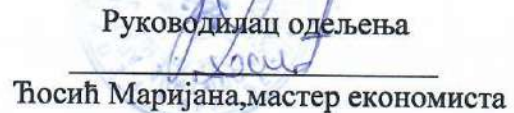 Руководилац одељења
Ћосић Маријана,мастер економиста